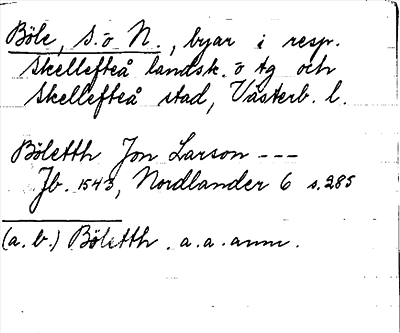 Böle, S. o N., byar i resp.
Skellefteå landsk. o tg och
Skellefteå stad, Västerb. l.
Böletth Jon Larson ---
Jb. 1543, Nordlander 6 s. 285
(a. b.) Böletth. a. a. anm.